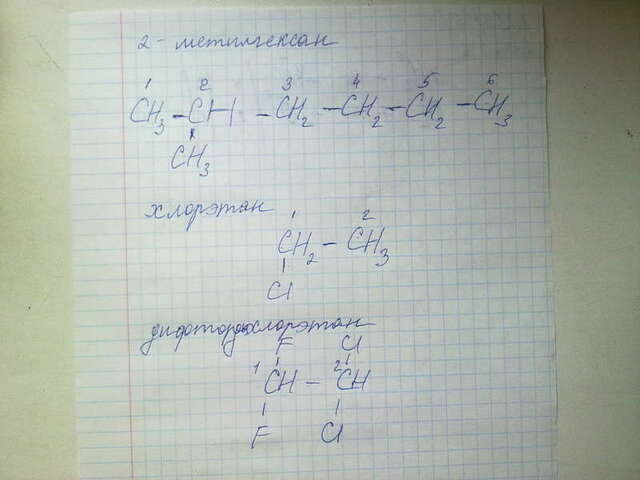 2 - метилгексан
1 2 3 4 5 6
CH3 - CH - CH2 - CH2 - CH2 - CH3
CH3
хлорэтан
1 2
CH2 - CH3
Cl
дифтордихлорэтан
F Cl
1 CH - 2 CH
F Cl